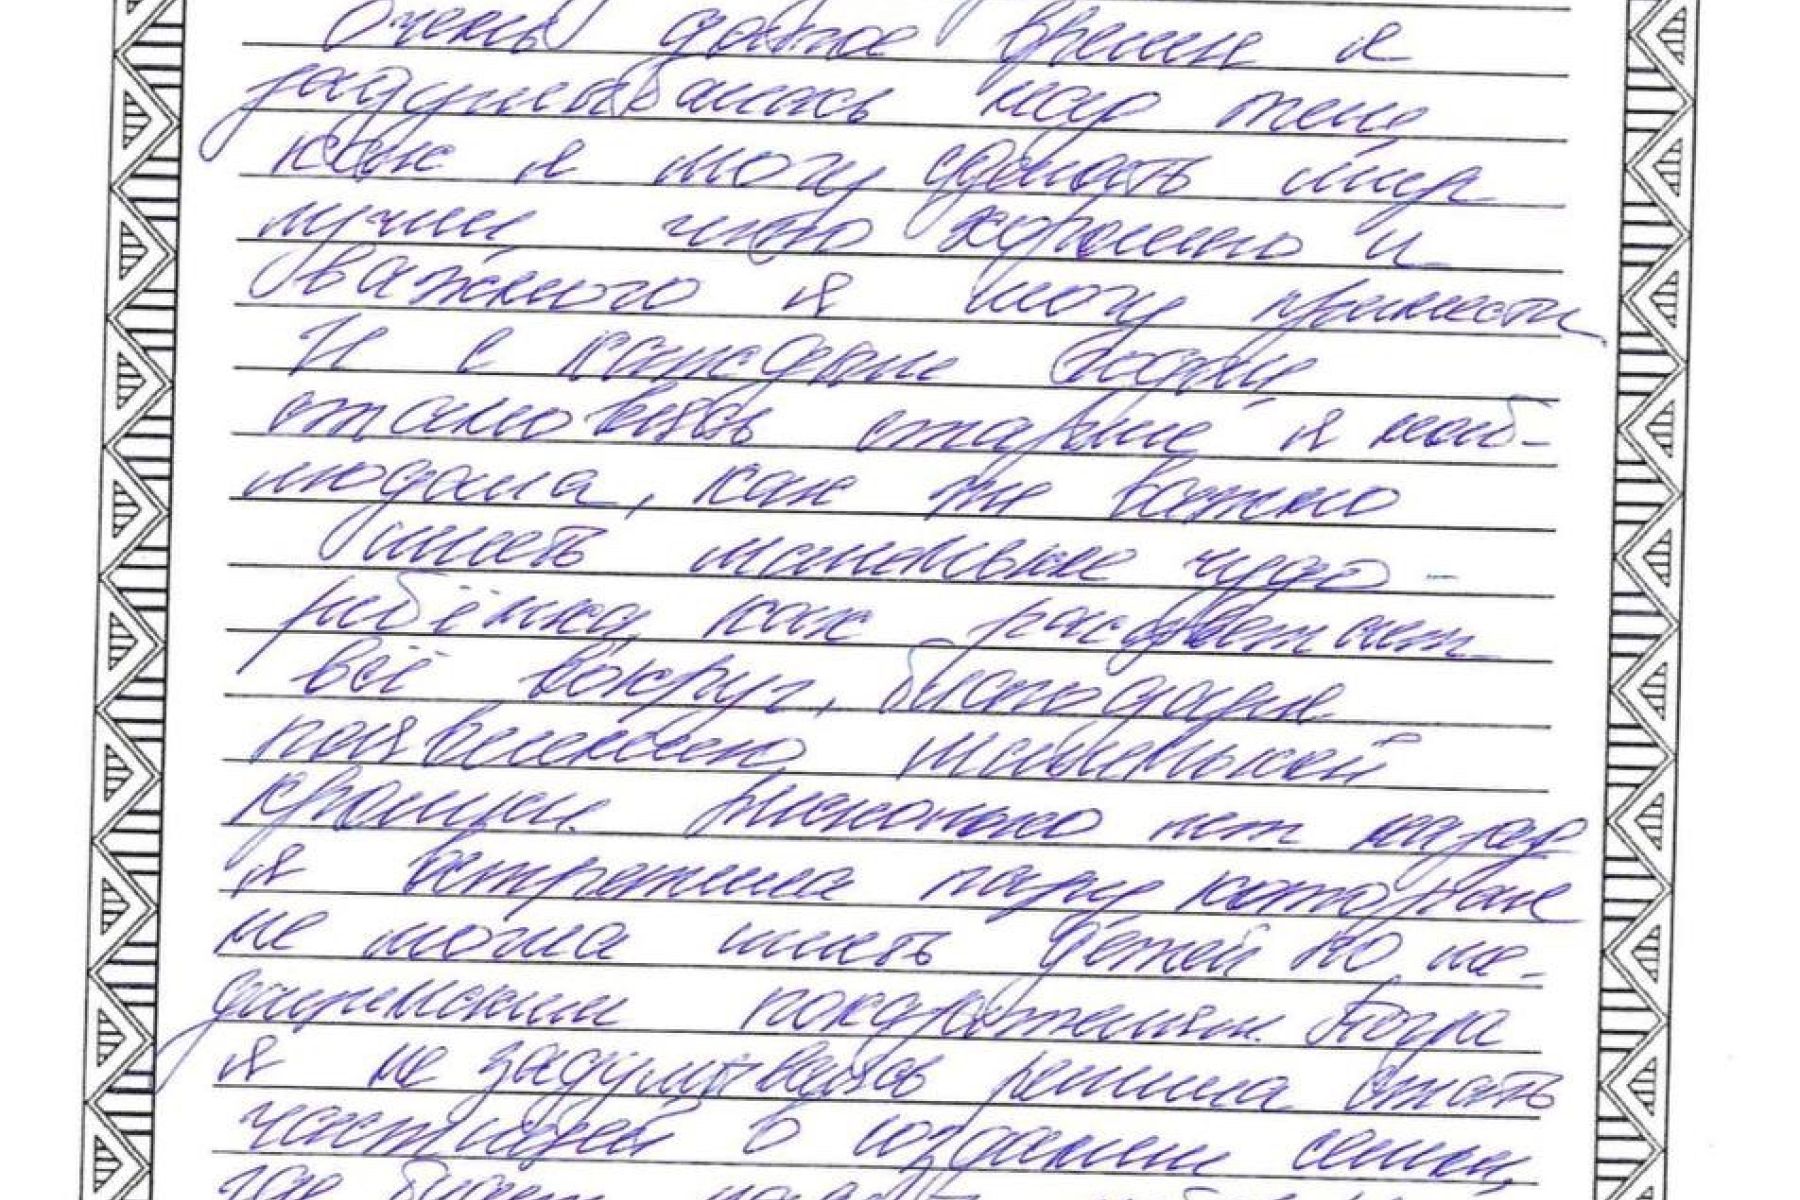 Очень долгое время я
задумывалась над тем,
как я могу сделать мир
лучше, что хорошо и
важного я могу принести
И с каждым годом
становясь старше я наб-
людала, как же важно
иметь маленькое чудо -
ребёнка, как расцветает
всё вокруг, благодаря
появлению маленькой
крошки. Несколько лет назад
я встретила пару которые
не могла иметь детей по ме-
дицинским показателям. Тогда
я не задумываясь решила стать
частицей в создании семьи,
где будет